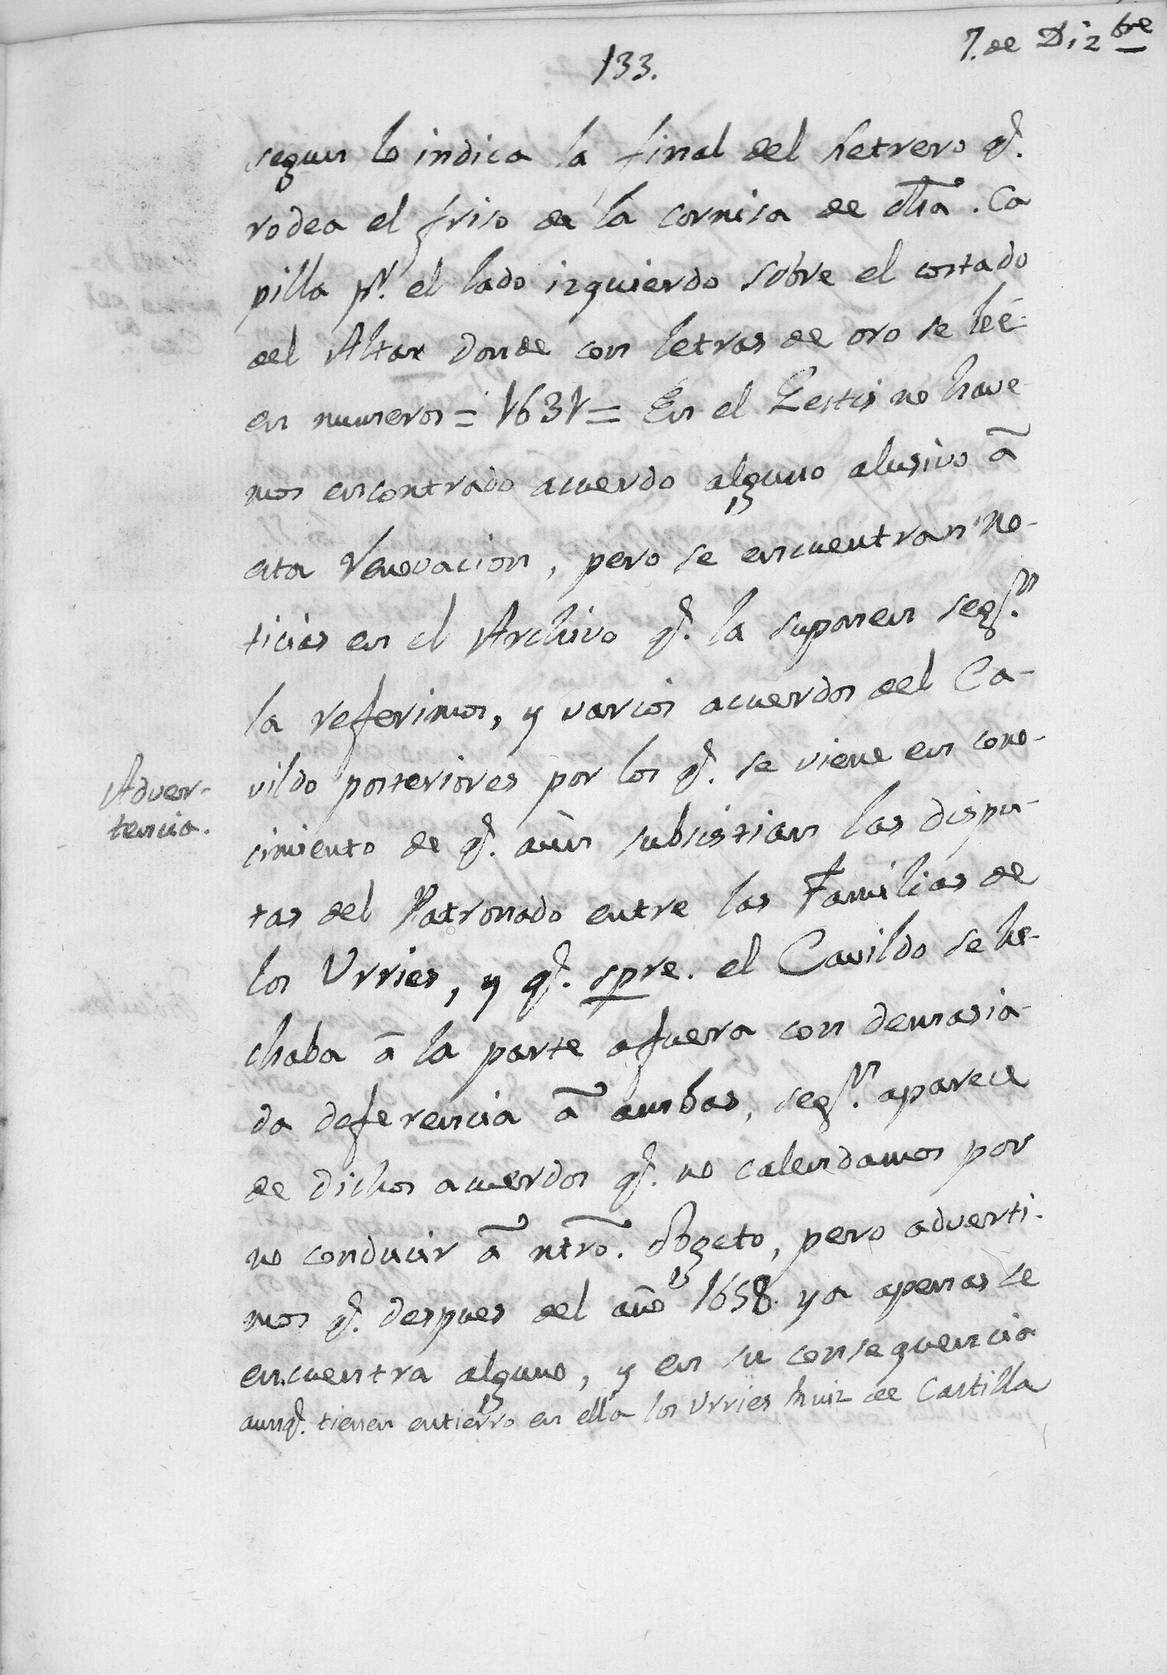 7. de Dizbre
133.
segun lo indica la final del Letrero q.
rodea el friso de la cornisa de dha. Ca
pilla pr. el lado izquierdo sobre el costado
del Altar donde con letras de oro se leé
en numeros = 1631 = En el Lestis no have
mos encontrado acuerdo alguno alusivo á
esta renovacion, pero se encuentran no-
ticias en el Archivo q. la suponen segn.
la referimos, y varios acuerdos del Ca-
Adver-
tencia.
vildo posteriores por los q. se viene en cono-
cimiento de q. aún subsistian las dispu-
tas del Patronado entre las Familias de
los Urries, y q. spre. el Cavildo se he-
chaba á la parte afuera con demasia-
da deferencia á ambas, segn. aparece
de dichos acuerdos q. no calendamos por
no conducir á ntro. Obgeto, pero adverti-
mos q. despues del año 1658. ya apenas se
encuentra alguno, y en su consequencia
aunq. tienen entierro en ella los Urries Ruiz de Castilla